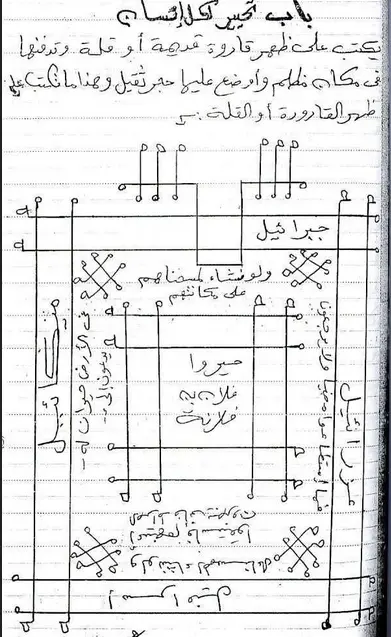 باب تحيير لكل إنسان
يكتب على ظهر قارورة قديمة أو قلة وتدفنها
في مكان مظلم وأوضع عليها حجر ثقيل وهذا ما تكتب على
ظهر القارورة أو القلة
جبرائيل
ولو نشاء لمسخناهم
على مكانتهم
ميكائيل
في الأرض حيران له
حيروا
فلان بن
فلانة
فما استطاعوا مضيا ولا يرجعون
عزرائيل
اسرافيل